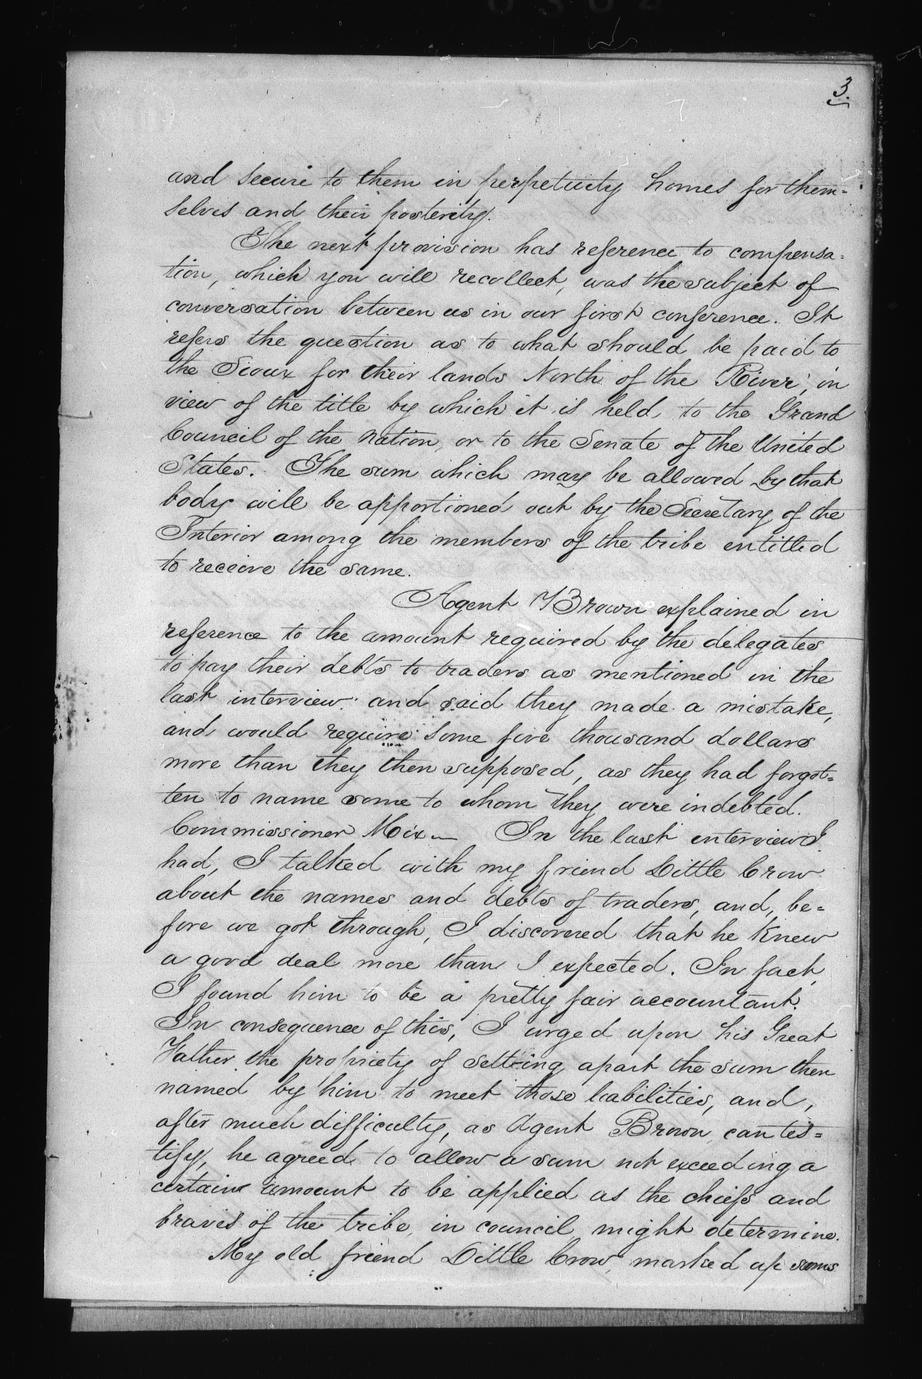 3.
and secure to them in perpetuity homes for them-
selves and their posterity.
The next provision has reference to compensa-
tion, which you will recollect, was the subject of
conversation between us in our first conference. It
refers the question as to what should be paid to
the Sioux for their lands North of the River, in
view of the title by which it is held, to the Grand
Council of the nation, or to the Senate of the United
States. The sum which may be allowed by that
body will be apportioned out by the Secretary of the
Interior among the members of the tribe entitled
to receive the same.
Agent Brown explained in
reference to the amount required by the delegates
to pay their debts to traders as mentioned in the
last interview and said they made a mistake,
and would require some five thousand dollars
more than they then supposed, as they had forgot=
ten to name some to whom they were indebted.
Commissioner Mix - In the last interview I
had, I talked with my friend Little Crow
about the names and debts of traders, and, be=
fore we got through, I discovered that he knew
a good deal more than I expected. In fact,
I found him to be a pretty fair accountant.
In consequence of this, I urged upon his Great
Father the propriety of setting apart the sum then
named by him to meet those liabilities, and,
after much difficulty, as Agent Brown can tes=
tify, he agreed to allow a sum not exceeding a
certain amount to be applied as the chiefs and
braves of the tribe in council might determine.
My old friend Little Crow marked up sums